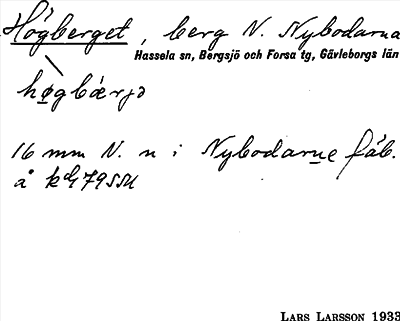 Högberget, berg N. Nybodarna
Hassela sn, Bergsjö och Forsa tg, Gävleborgs län
16 mm N. n i Nybodarne fäb.
å
LARS LARSSON 1933